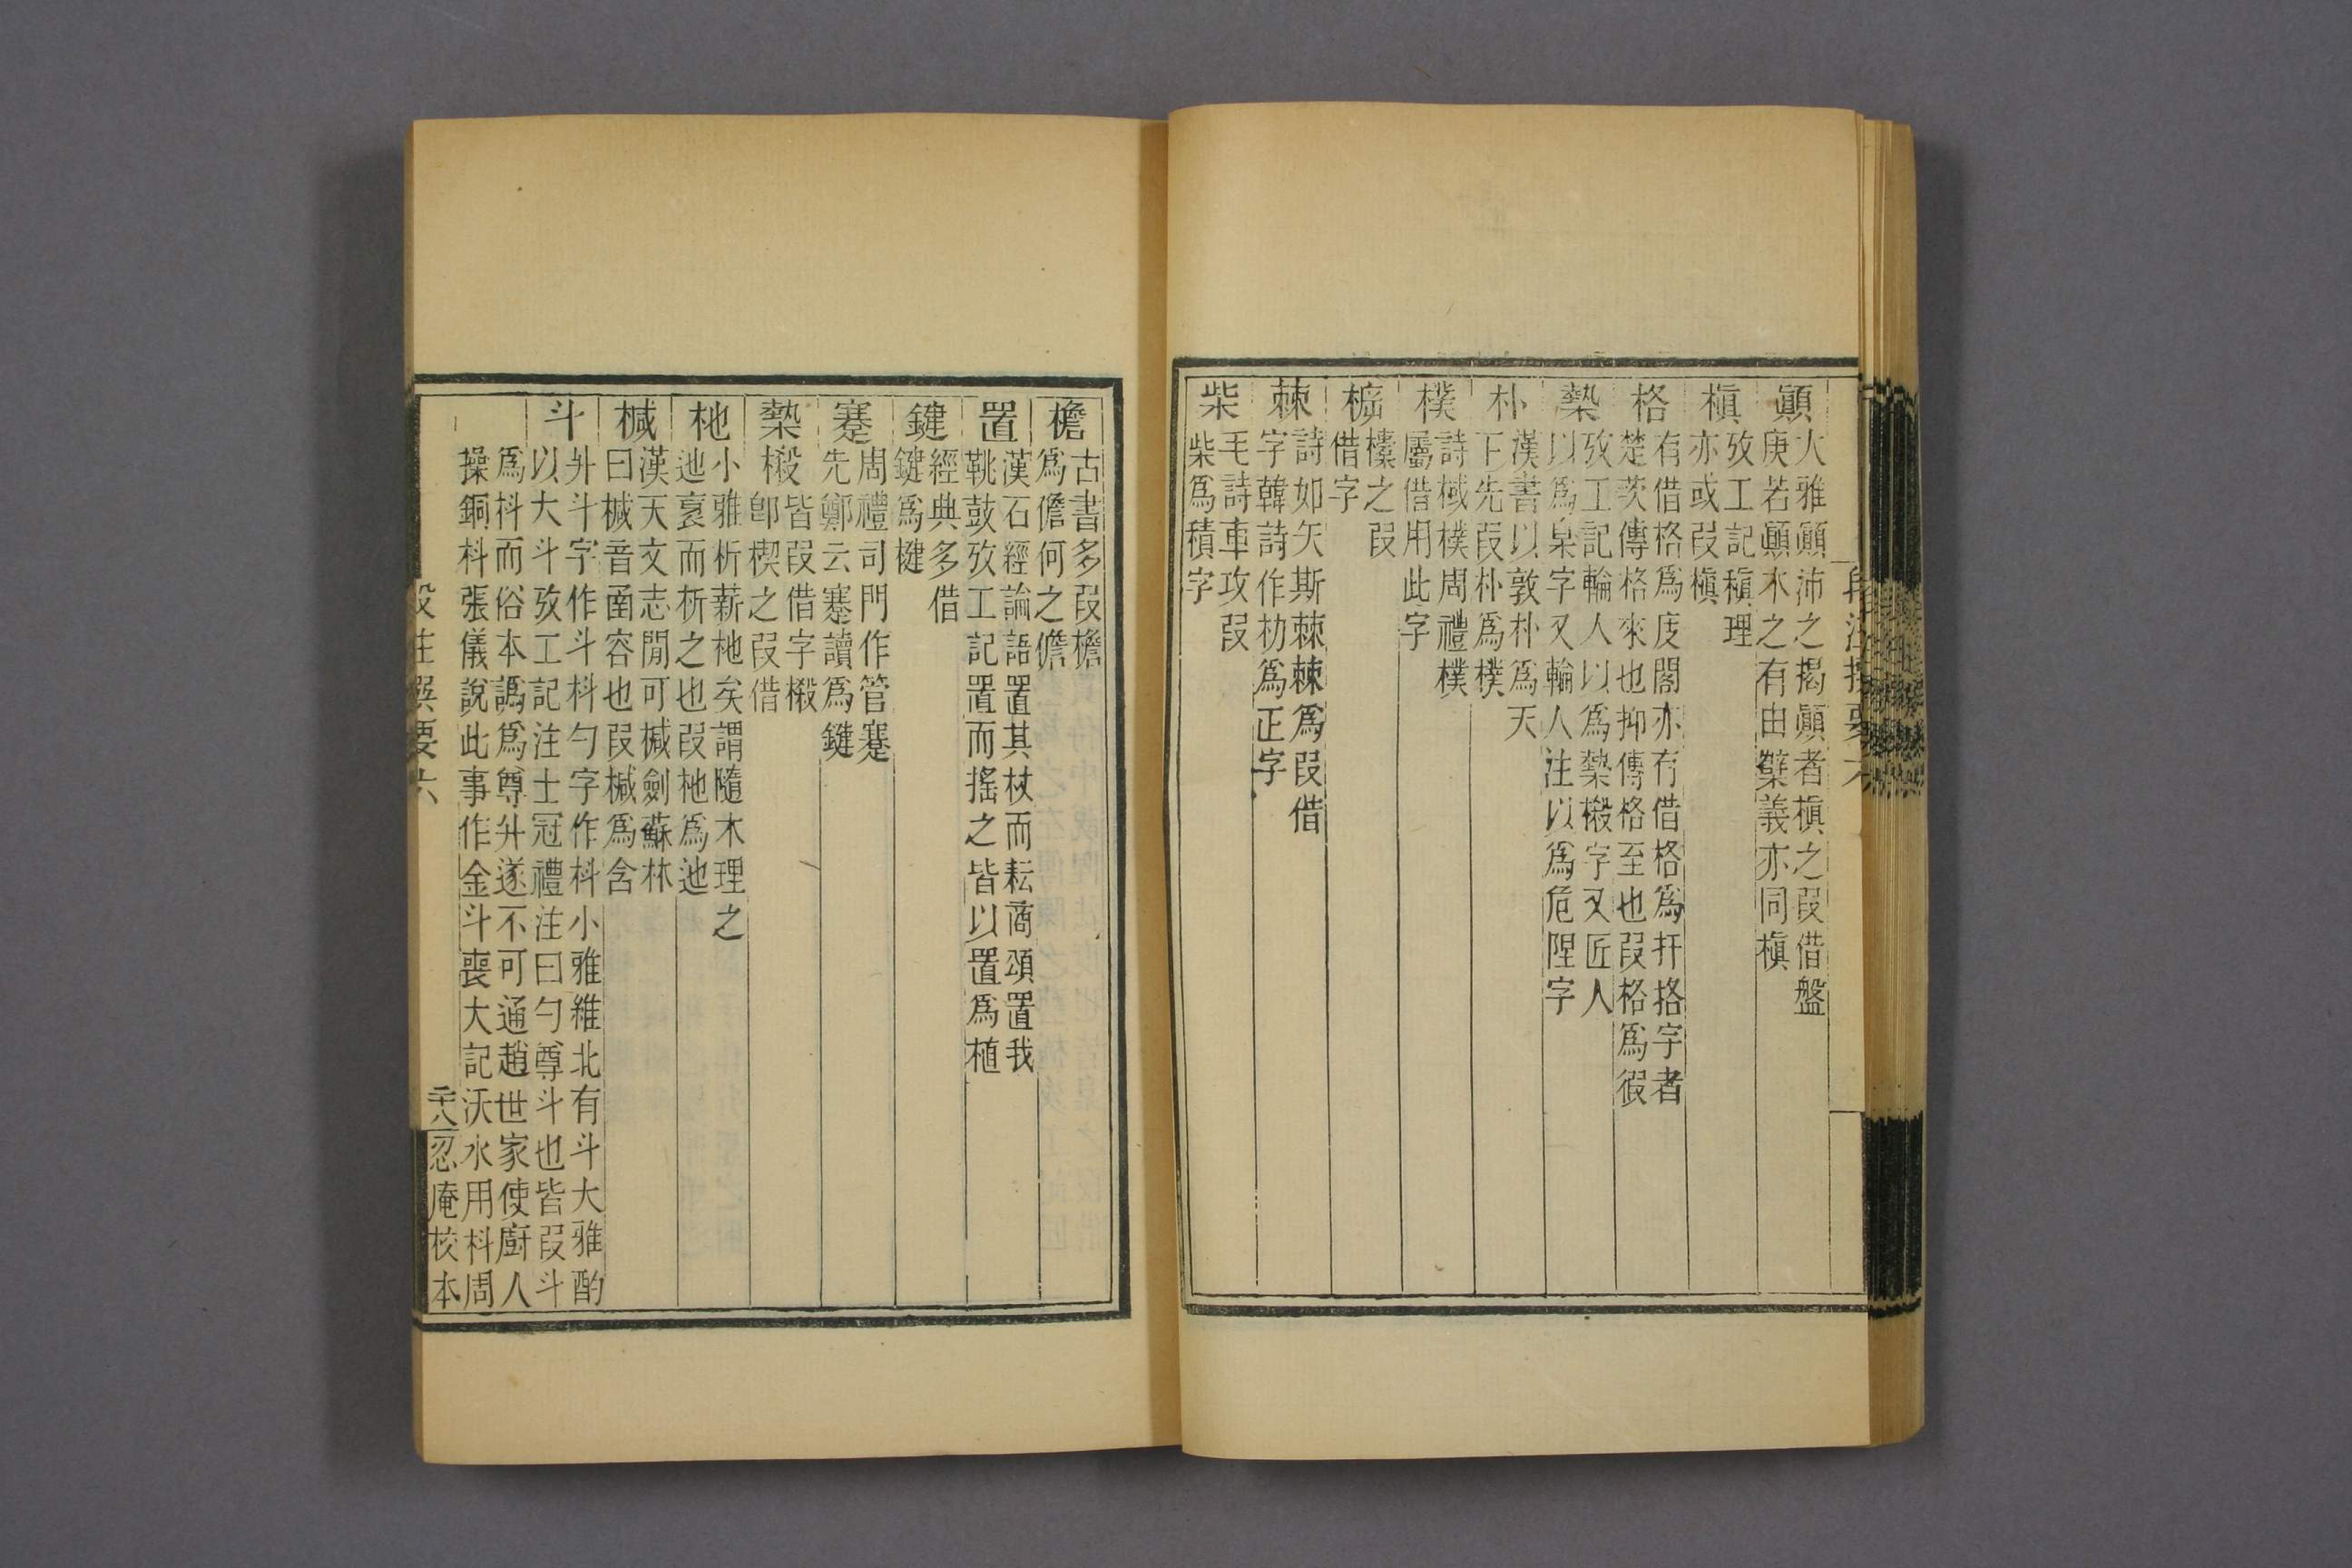 段注撰要六
顚
大雅顚沛之揭顚者槇之叚借盤
庚若顚木之有由櫱義亦同槇
槇
攷工記稹理
亦或叚槇
格
有借格爲庋閣亦有借格爲扞挌字者
楚茨傳格來也抑傳格至也叚格爲徦
槷
攷工記輪人以爲槷樧字又匠人
以爲臬字又輪人注以爲危隉字
朴
漢書以敦朴爲天
下先叚朴爲樸
樸
詩棫樸周禮樸
屬借用此字
櫎
櫎之叚
借字
棘
詩如矢斯棘棘爲叚借
字韓詩作朸爲正字
柴
毛詩車攻叚
柴爲積字
檐
古書多叚檐
爲儋何之儋
置
漢石經論語置其杖而耘商頌置我
鞉鼓攷工記置而搖之皆以置爲植
鍵
經典多借
鍵爲楗
蹇
周禮司門作管蹇
先鄭云蹇讀爲鍵
槷
樧皆叚借字樧
卽楔之叚借
杝
小雅析薪杝矣謂隨木理之
迆衺而析之也叚杝爲迆
椷
漢天文志閒可椷劍蘇林
曰椷音函容也叚椷爲含
斗
升斗字作斗枓勺字作枓小雅維北有斗大雅酌
以大斗攷工記注士冠禮注曰勺尊斗也皆叚斗
爲枓而俗本譌爲尊升遂不可通趙世家使廚人
操銅枓張儀說此事作金斗喪大記沃水用枓周
段注撰要六
二十八
忍庵校本